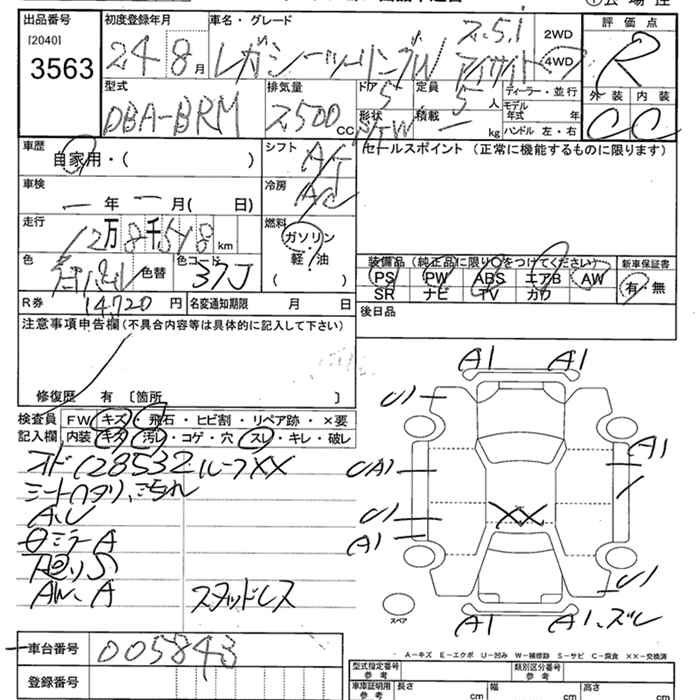 出品番号
[2040]
3563
初度登録年月
24 8月
車名・グレード
レガシーツーリングW
2.5i
アイサイト
2WD
4WD
評価点
R
外装 内装
C C
型式
DBA-BRM
排気量
2500 cc
ドア
5
形状
S/W
定員
5人
積載
ー kg
ディーラー・並行
モデル年式 年
ハンドル 左・右
車歴
自家用・( )
シフト
AT
セールスポイント (正常に機能するものに限ります)
車検
ー年ー月( 日)
冷房
AC
走行
12万8千518km
燃料
ガソリン
軽・油
( )
色
色替
色コード
37J
装備品 (純正品に限り○をつけてください)
新車保証書
PS PW ABS エアB AW
有・無
SR ナビ TV カワ
R券 14,720円
名変通知期限 月 日
後日品
注意事項申告欄(不具合内容等は具体的に記入して下さい)
修復歴 有 〔箇所 〕
検査員
記入欄
FW キズ・飛石・ヒビ割・リペア跡・×要
内装 キズ・汚レ・コゲ・穴・スレ・キレ・破レ
オド128532 ルーフXX
シートヘタリ、汚れ
A,U
ミラーA
AW、A
スタッドレス
A1 A1
U1
A1
UA1
U1
A1
XX
U1
スペア
A1 A1、ズレ
A-キズ E-エクボ U-凹み W-補修跡 S-サビ C-腐食 ××-交換済
車台番号
005843
登録番号
型式指定番号
参考
類別区分番号
参考
車庫証明用
参考
長さ cm
幅 cm
高さ cm